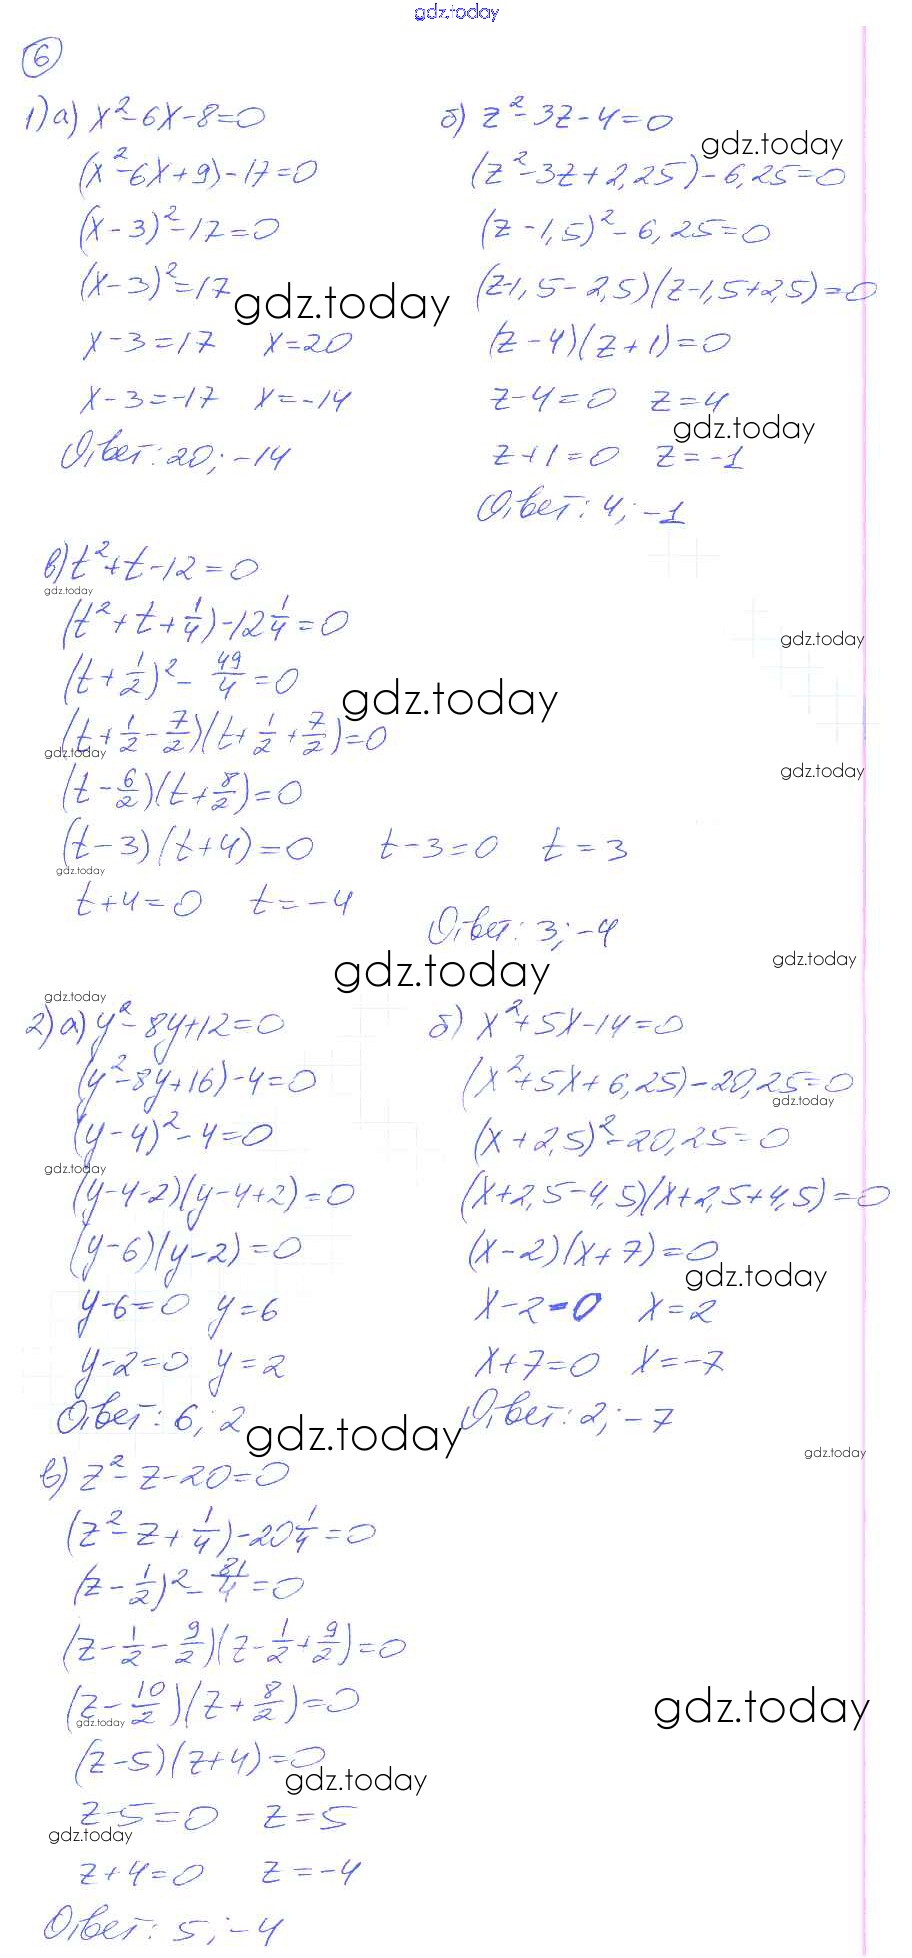 gdz.today
6
1) а) x²-6x-8=0
(x²-6x+9)-17=0
(x-3)²-17=0
(x-3)²=17
x-3=17 x=20
x-3=-17 x=-14
Ответ: 20; -14
б) z²-3z-4=0
gdz.today
(z²-3z+2,25)-6,25=0
(z-1,5)²-6,25=0
(z-1,5-2,5)(z-1,5+2,5)=0
gdz.today
(z-4)(z+1)=0
z-4=0 z=4
gdz.today
z+1=0 z=-1
Ответ: 4; -1
в) t²+t-12=0
gdz.today
(t²+t+1/4)-12 1/4=0
gdz.today
(t+1/2)²-49/4=0
gdz.today
(t+1/2-7/2)(t+1/2+7/2)=0
gdz.today
gdz.today
(t-6/2)(t+8/2)=0
(t-3)(t+4)=0 t-3=0 t=3
gdz.today
t+4=0 t=-4
Ответ: 3; -4
gdz.today
gdz.today
gdz.today
2) а) y²-8y+12=0
(y²-8y+16)-4=0
(y-4)²-4=0
gdz.today
(y-4-2)(y-4+2)=0
(y-6)(y-2)=0
y-6=0 y=6
y-2=0 y=2
Ответ: 6; 2
б) x²+5x-14=0
(x²+5x+6,25)-20,25=0
gdz.today
(x+2,5)²-20,25=0
(x+2,5-4,5)(x+2,5+4,5)=0
(x-2)(x+7)=0
gdz.today
x-2=0 x=2
x+7=0 x=-7
Ответ: 2; -7
gdz.today
gdz.today
в) z²-z-20=0
(z²-z+1/4)-20 1/4=0
(z-1/2)²-81/4=0
(z-1/2-9/2)(z-1/2+9/2)=0
(z-10/2)(z+8/2)=0
gdz.today
gdz.today
(z-5)(z+4)=0
gdz.today
z-5=0 z=5
gdz.today
z+4=0 z=-4
Ответ: 5; -4